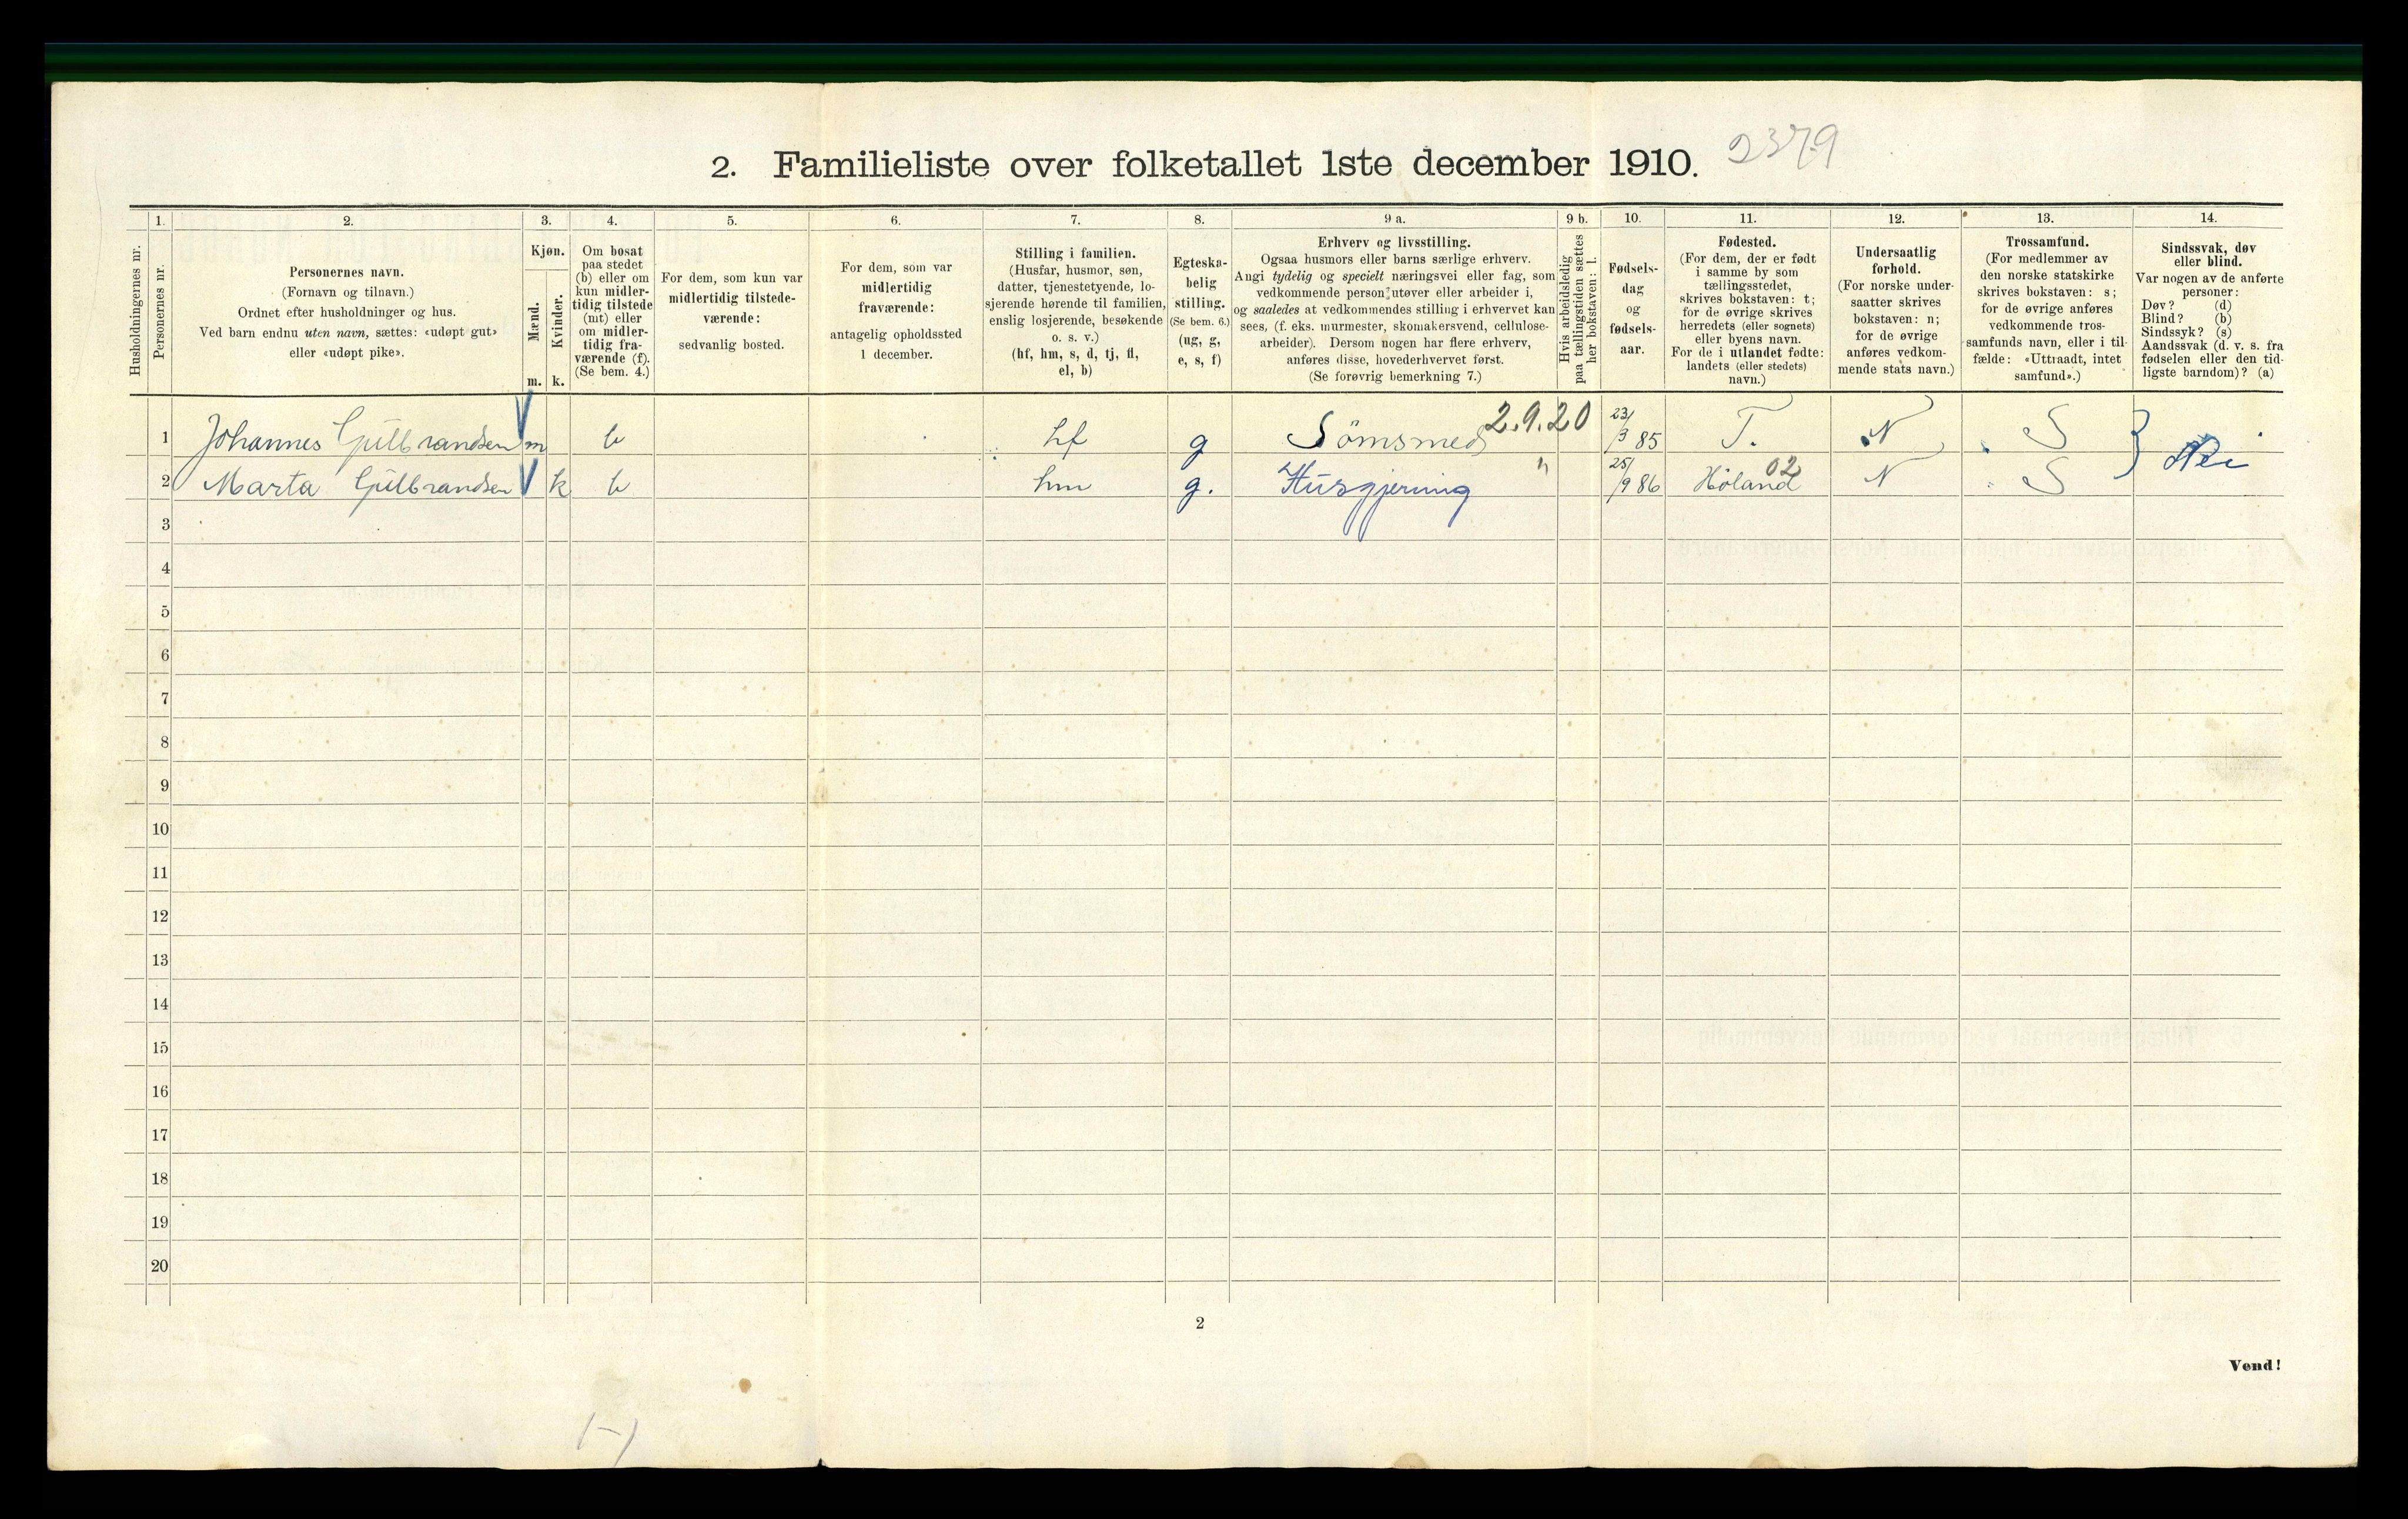 2. Familieliste over folketallet 1ste december 1910. 2379
Husholdningernes nr.
1.
Personernes nr.
2.
Personernes navn.
(Fornavn og tilnavn.)
Ordnet efter husholdninger og hus.
Ved barn endnu uten navn, sættes: «udøpt gut»
eller «udøpt pike».
3.
Kjøn.
Mænd.
Kvinder.
m. k.
4.
Om bosat
paa stedet
(b) eller om
kun midler-
tidig tilstede
(mt) eller
om midler-
tidig fra-
værende (f).
(Se bem. 4.)
5.
For dem, som kun var
midlertidig tilstede-
værende:
sedvanlig bosted.
6.
For dem, som var
midlertidig
fraværende:
antagelig opholdssted
1 december.
7.
Stilling i familien.
(Husfar, husmor, søn,
datter, tjenestetyende, lo-
sjerende hørende til familien,
enslig losjerende, besøkende
o. s. v.)
(hf, hm, s, d, tj, fl,
el, b)
8.
Egteska-
belig
stilling.
(Se bem. 6.)
(ug, g,
e, s, f)
9 a.
Erhverv og livsstilling.
Ogsaa husmors eller barns særlige erhverv.
Angi tydelig og specielt næringsvei eller fag, som
vedkommende person utøver eller arbeider i,
og saaledes at vedkommendes stilling i erhvervet kan
sees, (f. eks. murmester, skomakersvend, cellulose-
arbeider). Dersom nogen har flere erhverv,
anføres disse, hovederhvervet først.
(Se forøvrig bemerkning 7.)
9 b.
Hvis arbeidsledig
paa tællingstiden sættes
her bokstaven: l.
10.
Fødsels-
dag
og
fødsels-
aar.
11.
Fødested.
(For dem, der er født
i samme by som
tællingsstedet,
skrives bokstaven: t;
for de øvrige skrives
herredets (eller sognets)
eller byens navn.
For de i utlandet fødte:
landets (eller stedets)
navn.)
12.
Undersaatlig
forhold.
(For norske under-
saatter skrives
bokstaven: n;
for de øvrige
anføres vedkom-
mende stats navn.)
13.
Trossamfund.
(For medlemmer av
den norske statskirke
skrives bokstaven: s;
for de øvrige anføres
vedkommende tros-
samfunds navn, eller i til-
fælde: «Uttraadt, intet
samfund».)
14.
Sindssvak, døv
eller blind.
Var nogen av de anførte
personer:
Døv? (d)
Blind? (b)
Sindssyk? (s)
Aandssvak (d. v. s. fra
fødselen eller den tid-
ligste barndom)? (a)
1 Johannes Gulbrandsen m b hf g Sømsmed 2.9.20 23/3 85 T. N S Nei
2 Marta Gulbrandsen k b hm g. Husgjerning " 25/9 86 Høland 02 N S
3
4
5
6
7
8
9
10
11
12
13
14
15
16
17
18
19
20
2
Vend!
1-1